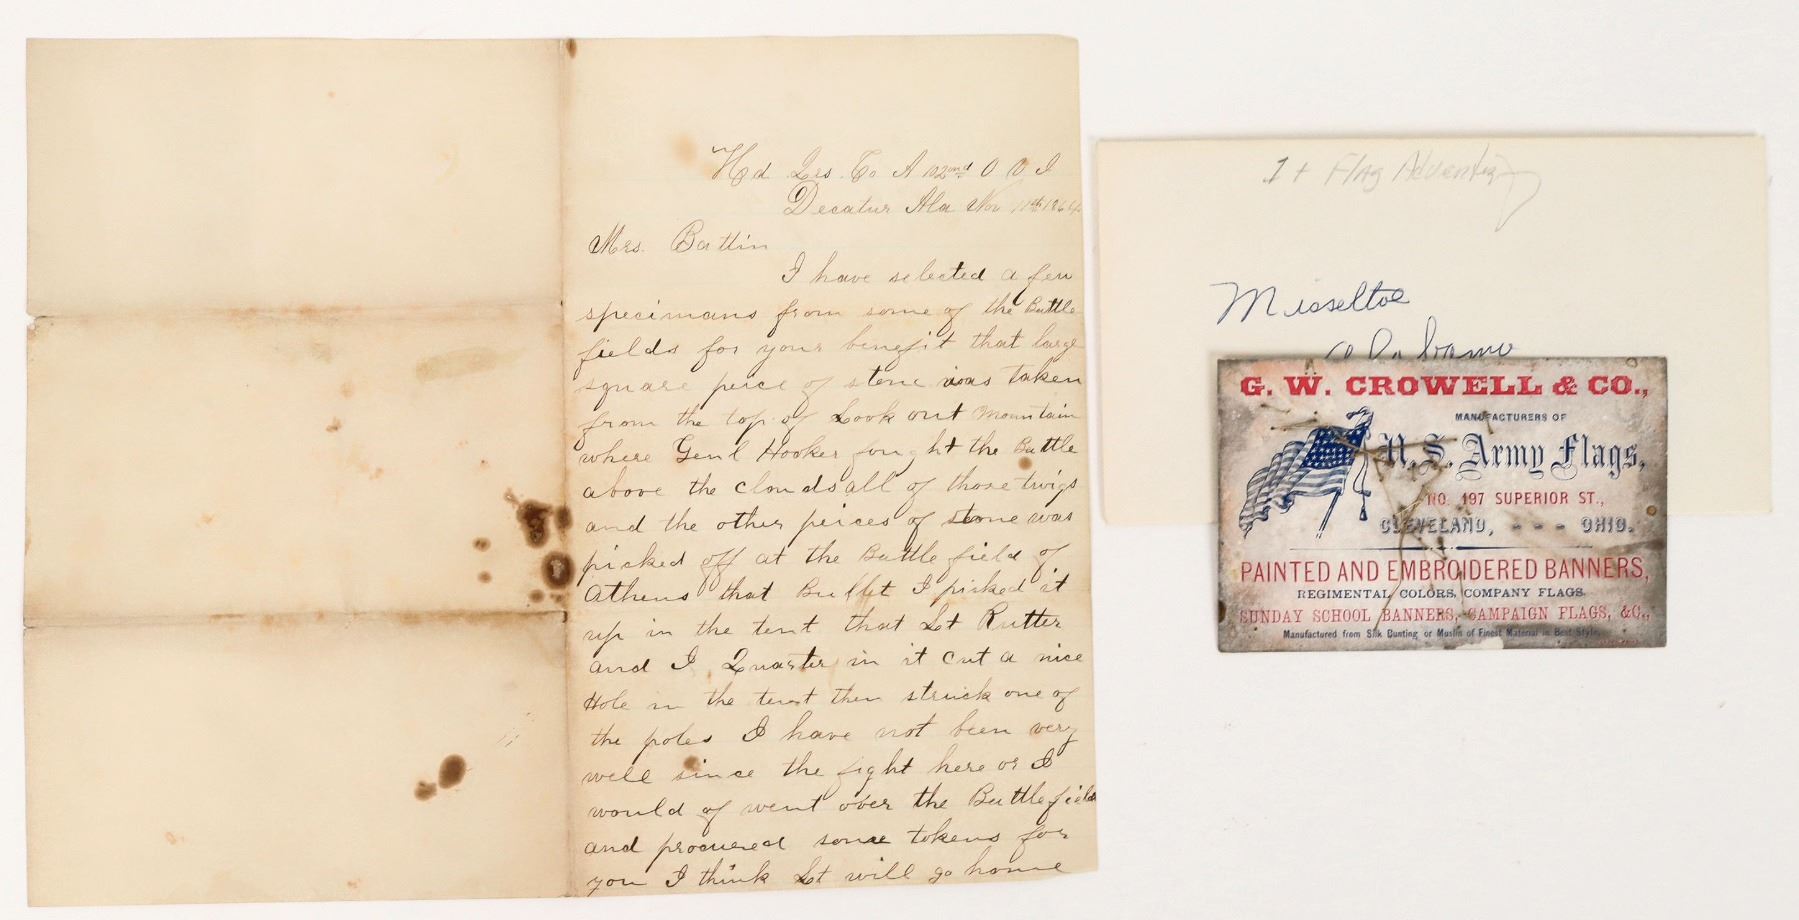 Hd Qrs. Co A 102nd O V I
Decatur Ala Nov 11th 1864
Mrs. Battin
I have selected a few
specimans from some of the Battle
fields for your benefit that large
square peice of stone was taken
from the top of Look out Mountain
where Genl Hooker fought the Battle
above the clouds all of those twigs
and the other peices of stone was
picked off at the Battle field of
Athens that Bullet I picked it
up in the tent that Lt Rutter
and I Quarter in it cut a nice
Hole in the tent then struck one of
the poles I have not been very
well since the fight here or I
would of went over the Battlefield
and procured some tokens for
you I think Lt will go home
1 + Flag
Misseltoe
Alabama
G. W. CROWELL & CO.,
MANUFACTURERS OF
U. S. Army Flags,
NO. 197 SUPERIOR ST.,
CLEVELAND, - - - OHIO.
PAINTED AND EMBROIDERED BANNERS,
REGIMENTAL COLORS, COMPANY FLAGS.
SUNDAY SCHOOL BANNERS, CAMPAIGN FLAGS, &C.,
Manufactured from Silk Bunting or Muslin of Finest Material in Best Style.